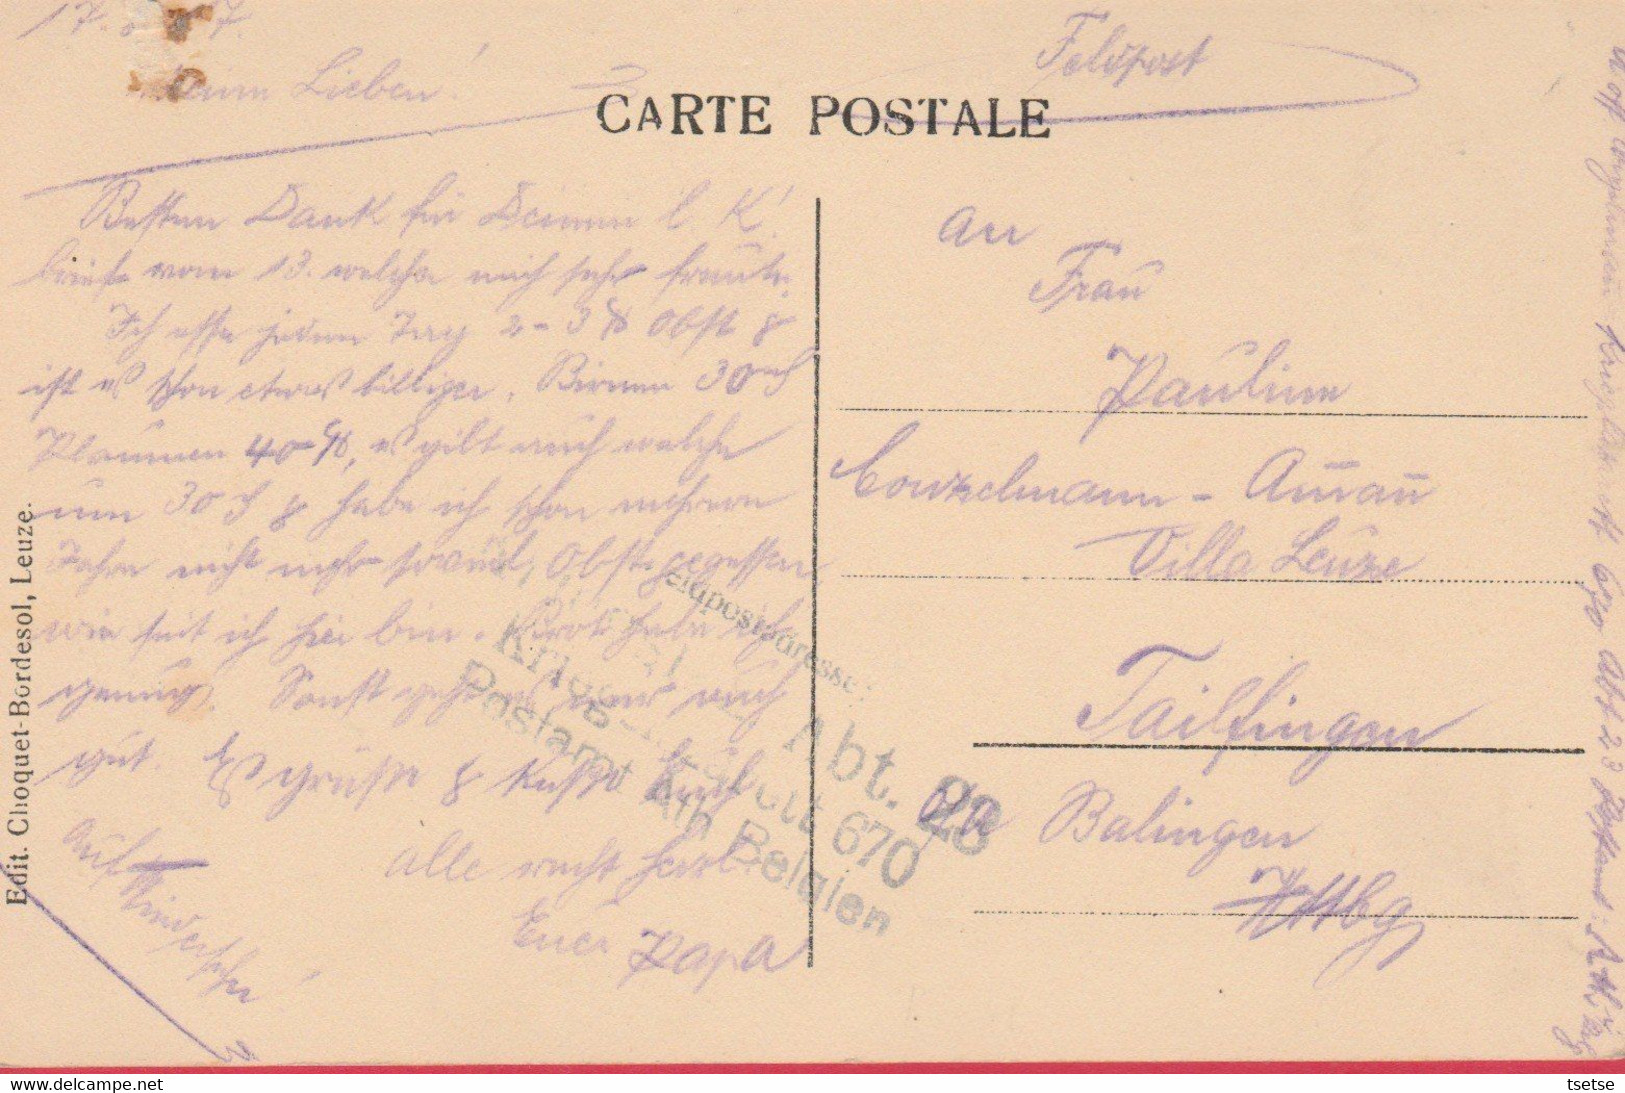 17. 7.
Meine Lieben!
Feldpost
CARTE POSTALE
Besten Dank für Deinen l. K!
brief vom 13. welcher mich sehr freute.
Ich esse jeden Tag 2-3 ℔ Obst &
ist es schon etwas billiger. Birnen 30 ₰
Plaumen 40 ₰, es gibt auch welche
um 30 ₰ & habe ich schon mehrere
Jahre nicht mehr soviel Obst gegessen
wie seit ich hier bin. Brot habe ich
genug. Sonst geht es mir auch
gut. Es grüßt & küßt Euch
alle recht herzl.
Euer Papa
Auf Wiedersehn!
An
Frau
Pauline
Conzelmann - Ammann
Villa Leuze
Tailfingen
OA Balingen
Wttbg
Feldpostadresse:
Abt. 23
670
Postamt Ath Belgien
Uoff Conzelmann Kriegslaz. 670 Abt 23 Postamt: Ath Blg
Edit. Choquet-Bordesol, Leuze.
tsetse